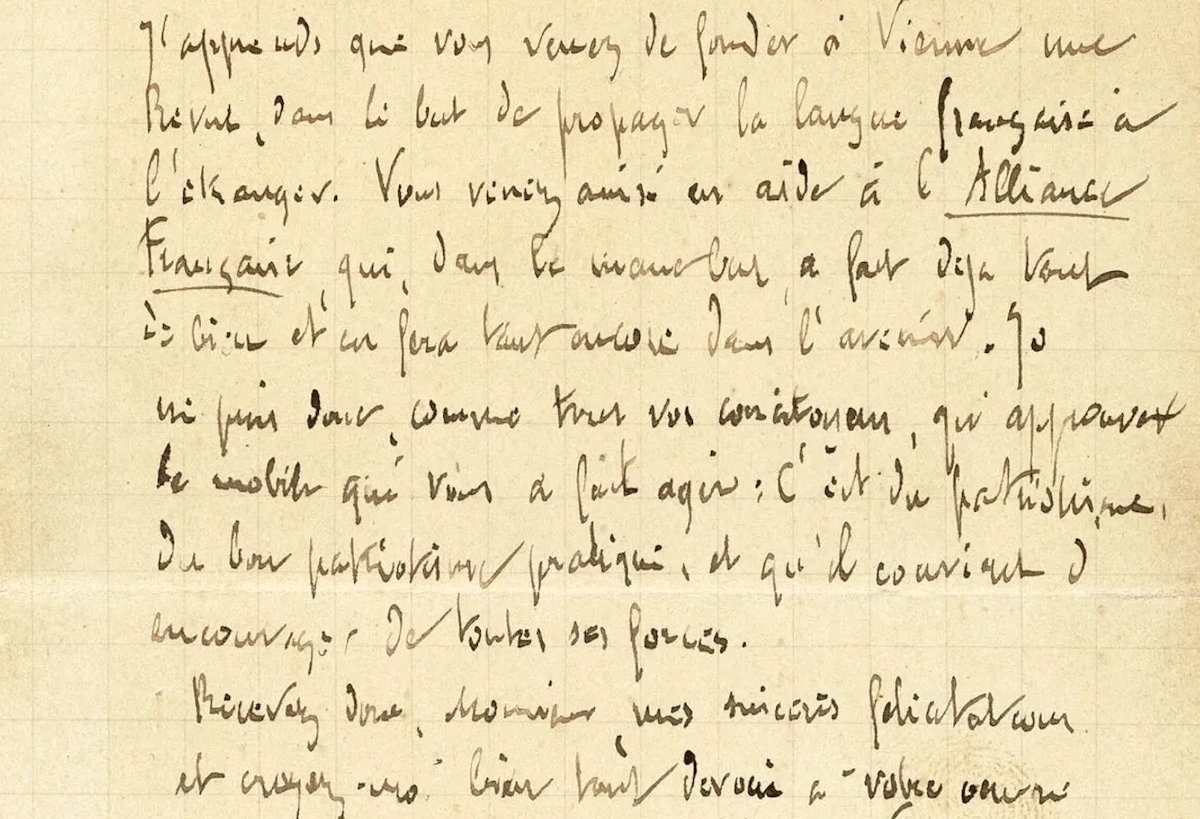 J'apprends que vous venez de fonder à Vienne une
Revue, dans le but de propager la langue française à
l'étranger. Vous venez ainsi en aide à l'Alliance
Française, qui, dans le même but, a fait déjà tant
de bien et en fera tant encore dans l'avenir. Je
ne puis donc, comme tous vos concitoyens, qu'approuver
le mobile qui vous a fait agir : C'est du patriotisme,
du bon patriotisme pratique, et qu'il convient d'
encourager de toutes ses forces.
Recevez donc, Monsieur, mes sincères félicitations
et croyez-moi bien tout dévoué à votre œuvre